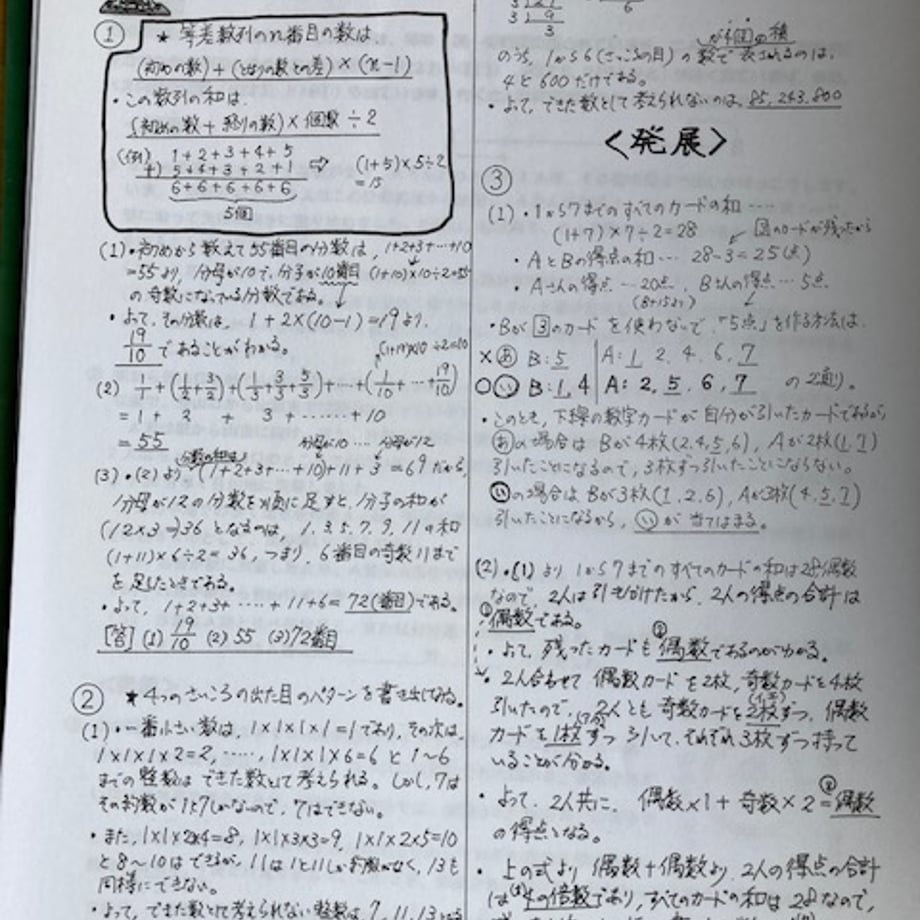 ① ★ 等差数列のn番目の数は、
(初めの数)+(となりの数との差)×(n-1)
・この数列の和は、
(初めの数+終りの数)×個数÷2
(例) 1+2+3+4+5
+) 5+4+3+2+1 ⇨ (1+5)×5÷2
6+6+6+6+6 =15
5個
(1)・初めから数えて55番目の分数は、1+2+3+…+10
=55より、分母が10で、分子が10番目 (1+10)×10÷2=55
の奇数になっている分数である。
・よって、その分数は、1+2×(10-1)=19より、
19/10 であることがわかる。
(1+19)×10÷2÷10
(2) 1/1+(1/2+3/2)+(1/3+3/3+5/3)+…+(1/10+…+19/10)
=1+2+3+……+10
=55 分母が10 … 分母が12
分数の和は
(3)・(2)より (1+2+3+…+10)+11+3=69だから、
分母が12の分数を順に足すと、分子の和が
(12×3=)36となるのは、1,3,5,7,9,11の和
(1+11)×6÷2=36、つまり、6番目の奇数11まで
を足したときである。
・よって、1+2+3+……+11+6=72(番目)である。
[答](1) 19/10 (2) 55 (3) 72番目
② ★4つのさいころの出た目のパターンを書き出してみる。
(1)・一番小さい数は、1×1×1×1=1であり、その次は、
1×1×1×2=2,……,1×1×1×6=6と1~6
までの整数はできた数として考えられる。しかし、7は
その約数が1と7しかないので、7はできない。
・また、1×1×2×4=8, 1×1×3×3=9, 1×1×2×5=10
と8~10はできるが、11は1と11しか約数がなく、13も
同様にできない。
・よって、できた数として考えられない整数は、7,11,13となる
3
が4個の積
のうち、1から6(さいころの目)の数で表されるのは、
4と600だけである。
・よって、できた数として考えられないのは、85,243,800
<発展>
③
(1)・1から7までのすべてのカードの和……
(1+7)×7÷2=28 3のカードが残ったから
・AとBの得点の和… 28-3=25(点)
・Aさんの得点…20点、Bさんの得点…5点
・Bが3のカードを使わないで、「5点」を作る方法は、
×あ B:5 A:1,2,4,6,7
○い B:1,4 A:2,5,6,7 の2通り。
・このとき、下線の数字カードが自分が引いたカードであるから
あの場合はBが4枚(2,4,5,6)、Aが2枚(1,7)
引いたことになるので、3枚ずつ引いたことにならない。
いの場合はBが3枚(1,2,6)、Aが3枚(4,5,7)
引いたことになるから、いが当てはまる。
(2)・(1)より1から7までのすべてのカードの和は28で偶数
なので、2人は引き分けたから、2人の得点の合計は
①偶数である。
・よって、残ったカードも②偶数であるのがわかる。
・2人合わせて偶数カードを2枚、奇数カードを4枚
引いたので、2人とも奇数カードを2枚ずつ、偶数
カードを1枚ずつ引いて、それぞれ3枚ずつ持って
いることが分かる。
・よって、2人共に、偶数×1+奇数×2=偶数
の得点となる。
・上の式より 偶数+偶数より、2人の得点の合計
は4の倍数であり、すべてのカードの和は28なので、